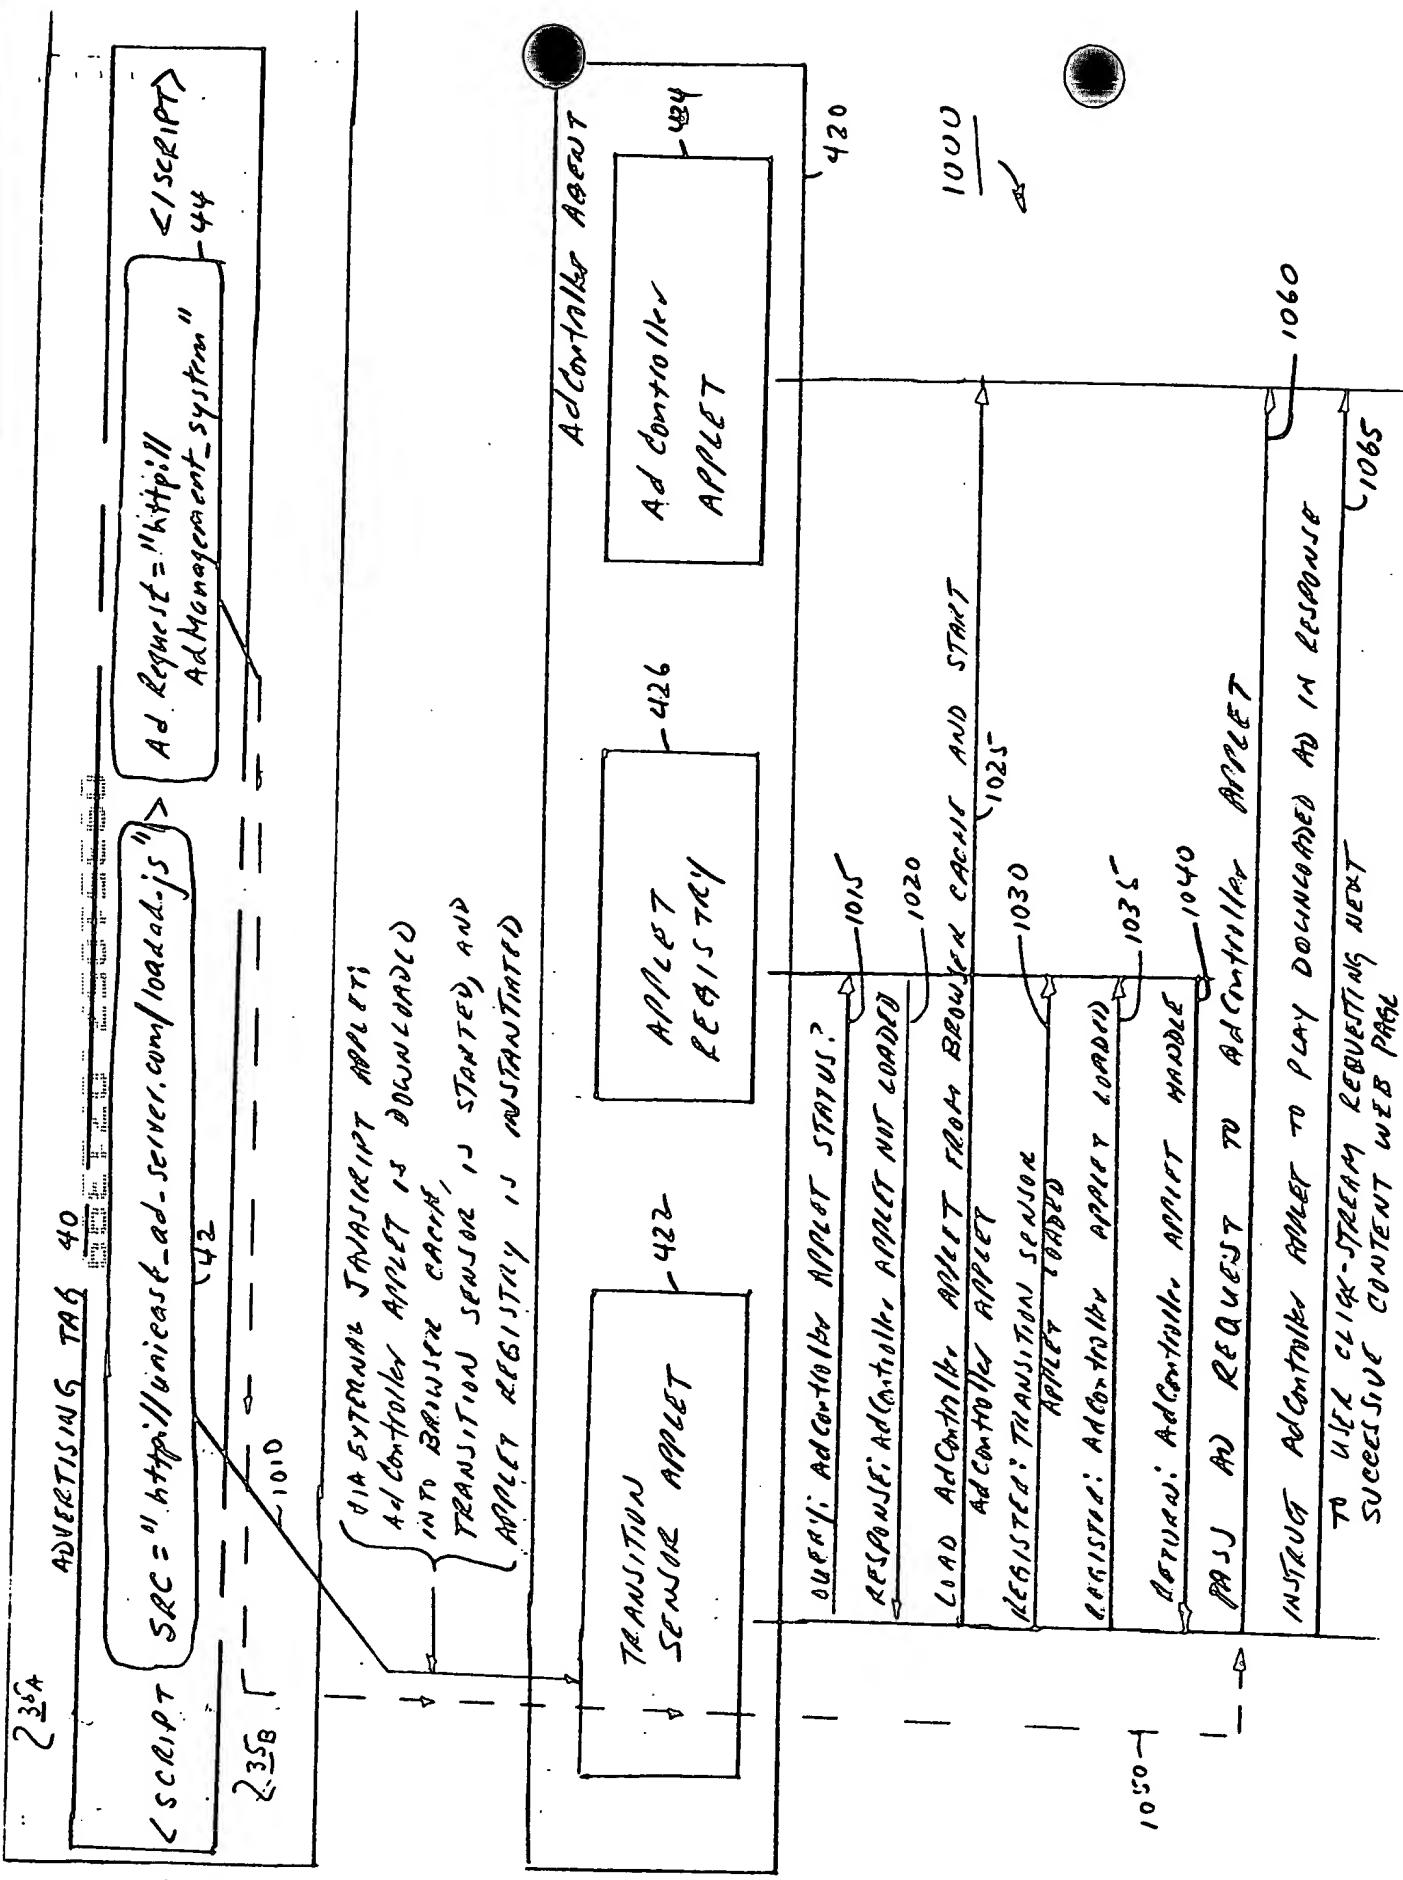 235A
ADVERTISING TAG 40
<SCRIPT SRC="http://unicast_ad_server.com/loadad.js"> Ad Request="http://
AdManagement_system" </SCRIPT>
42
44
235B
1010
VIA EXTERNAL JAVASCRIPT APPLET;
AdController APPLET IS DOWNLOADED
INTO BROWSER CACHE,
TRANSITION SENSOR IS STARTED, AND
APPLET REGISTRY IS INSTANTIATED
AdController AGENT
TRANSITION
SENSOR APPLET
422
APPLET
REGISTRY
426
Ad Controller
APPLET
424
420
QUERY: AdController APPLET STATUS?
1015
RESPONSE: AdController APPLET NOT LOADED
1020
LOAD AdController APPLET FROM BROWSER CACHE AND START
AdController APPLET
1025
REGISTER: TRANSITION SENSOR
APPLET LOADED
1030
REGISTER: AdController APPLET LOADED
1035
RETURN: AdController APPLET HANDLE
1040
PASS AD REQUEST TO AdController APPLET
1060
INSTRUCT AdController APPLET TO PLAY DOWNLOADED AD IN RESPONSE
TO USER CLICK-STREAM REQUESTING NEXT
SUCCESSIVE CONTENT WEB PAGE
1065
1050
1000